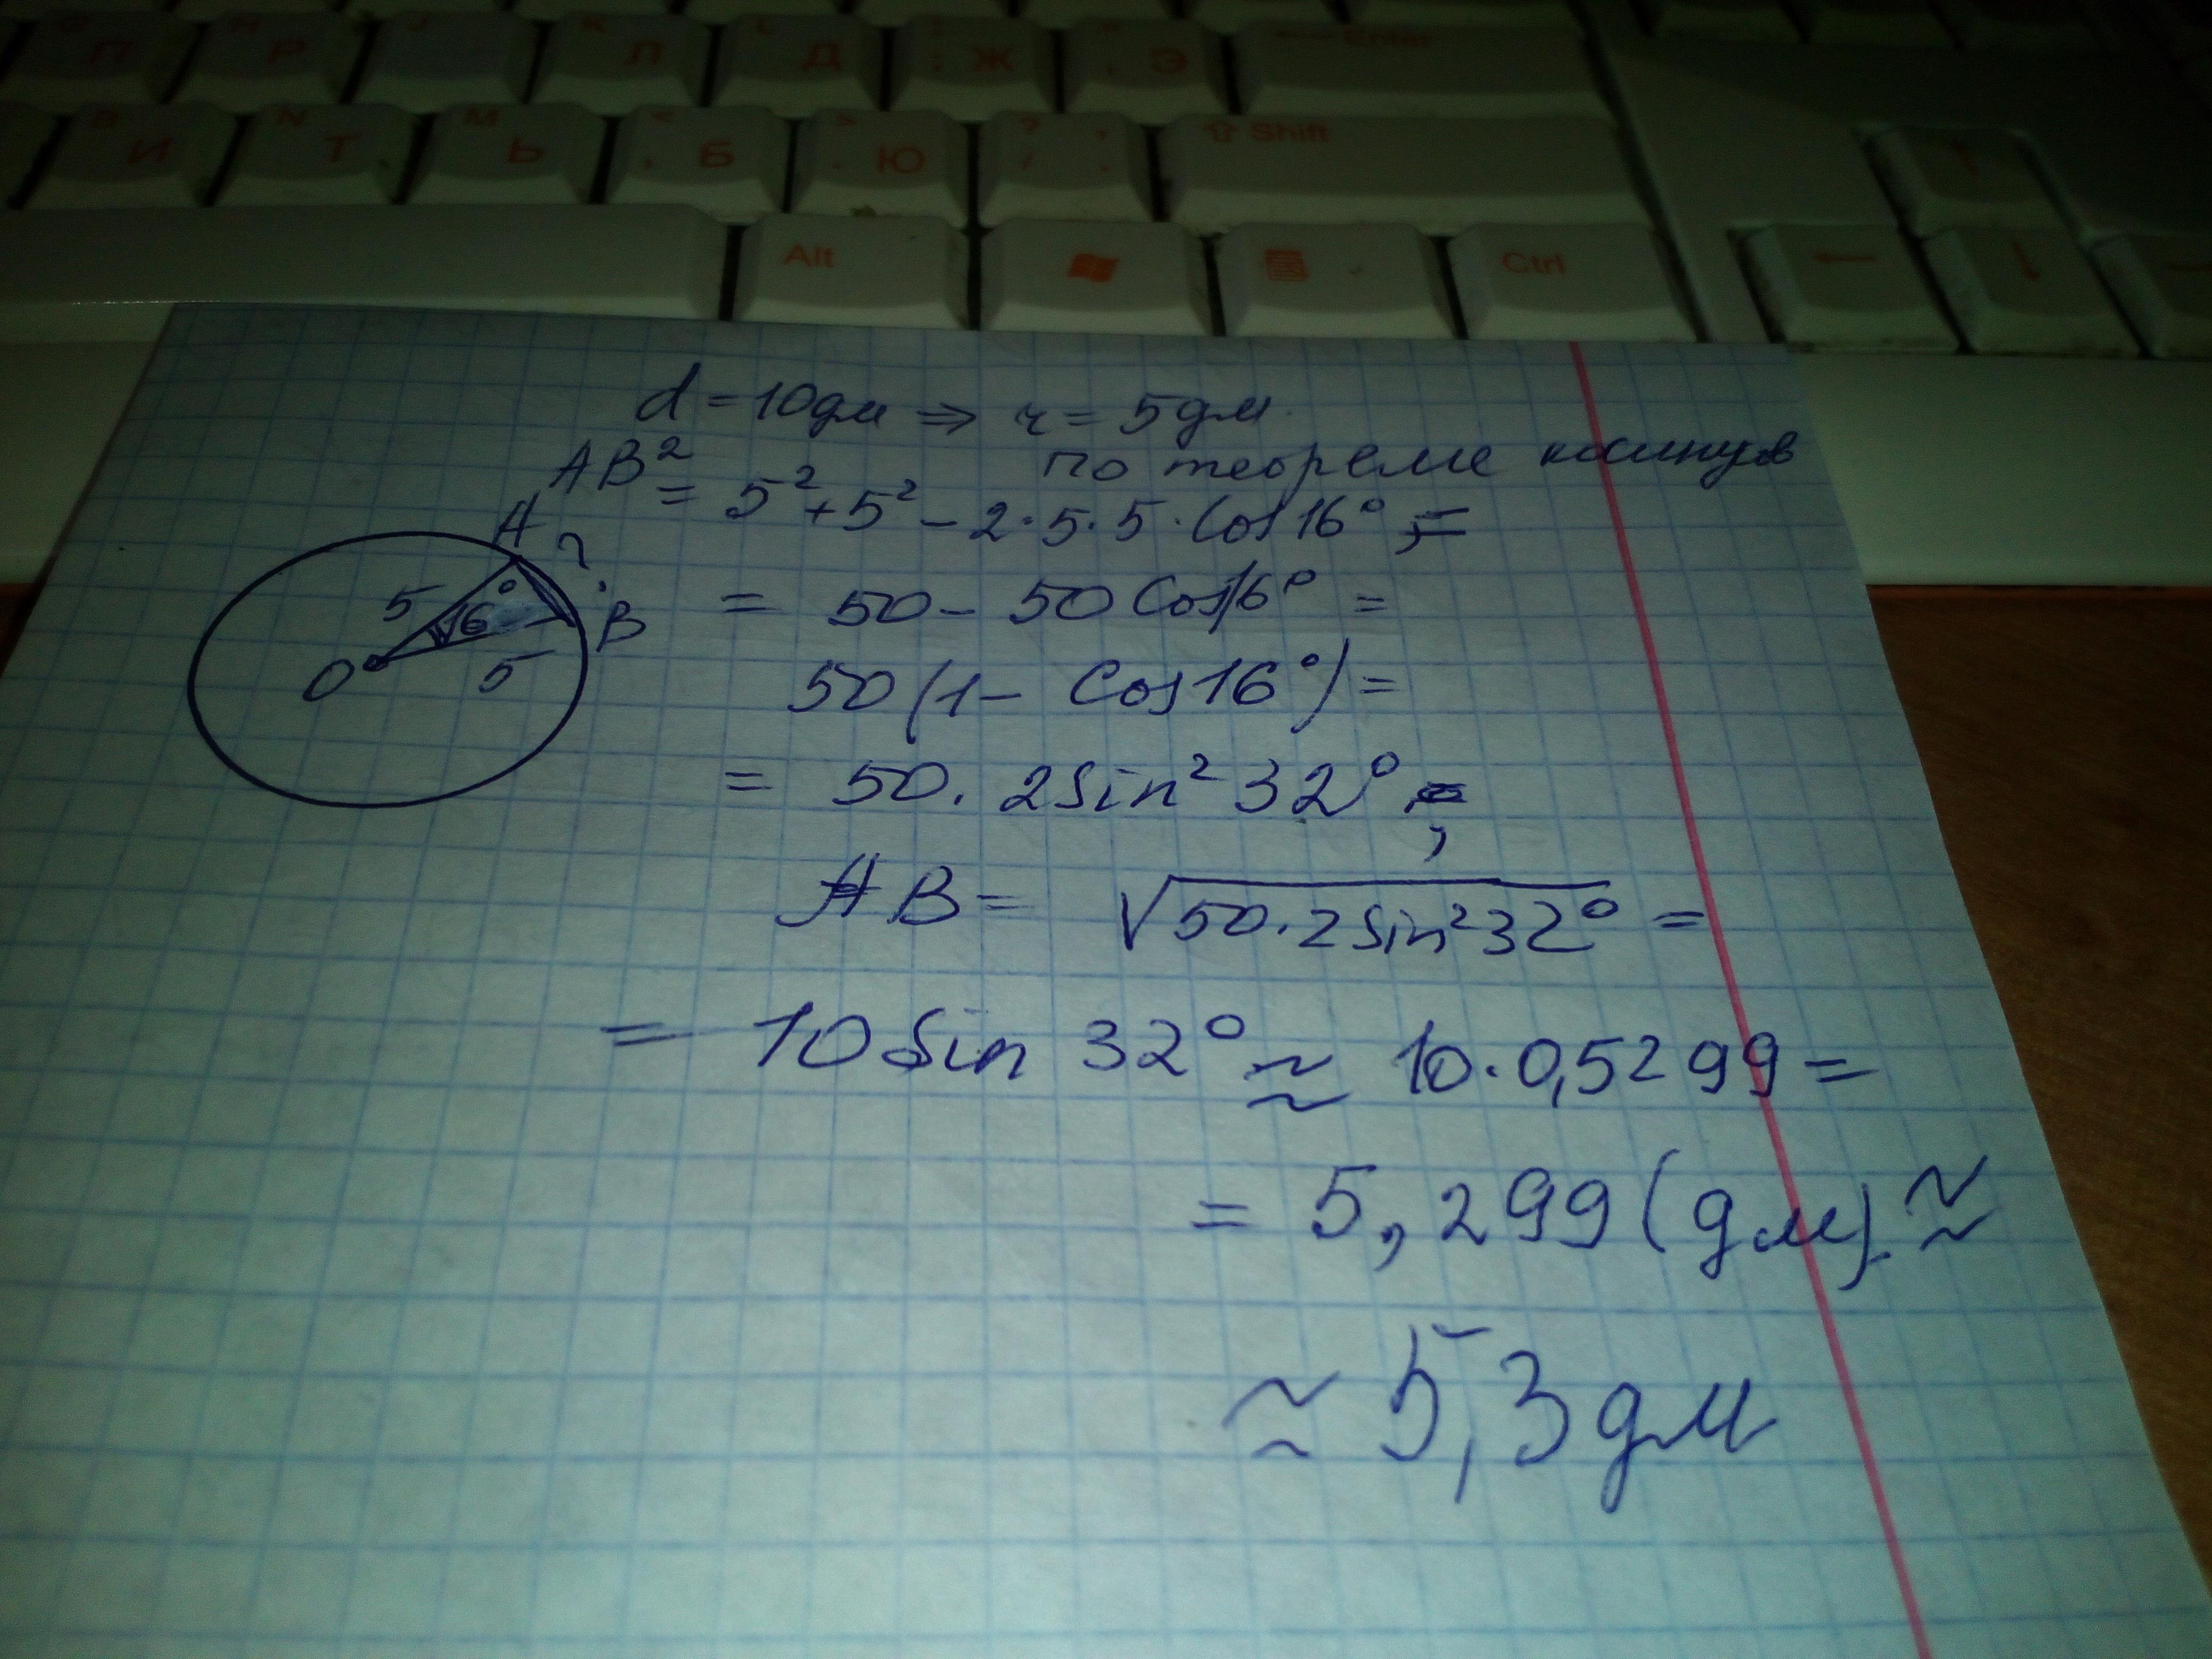 П Р Л Д Ж Э Enter
И Т Ь Б Ю Shift
Alt Ctrl
d = 10дм => r = 5дм
по теореме косинусов
AB² = 5² + 5² - 2·5·5·Cos 16° , =
A ?
5 16° B
O 5
= 50 - 50 Cos 16° =
50 (1 - Cos 16°) =
= 50 · 2 Sin² 32° ,
AB = √50·2 Sin² 32° =
= 10 Sin 32° ≈ 10·0,5299 =
= 5,299 (дм) ≈
≈ 5,3 дм